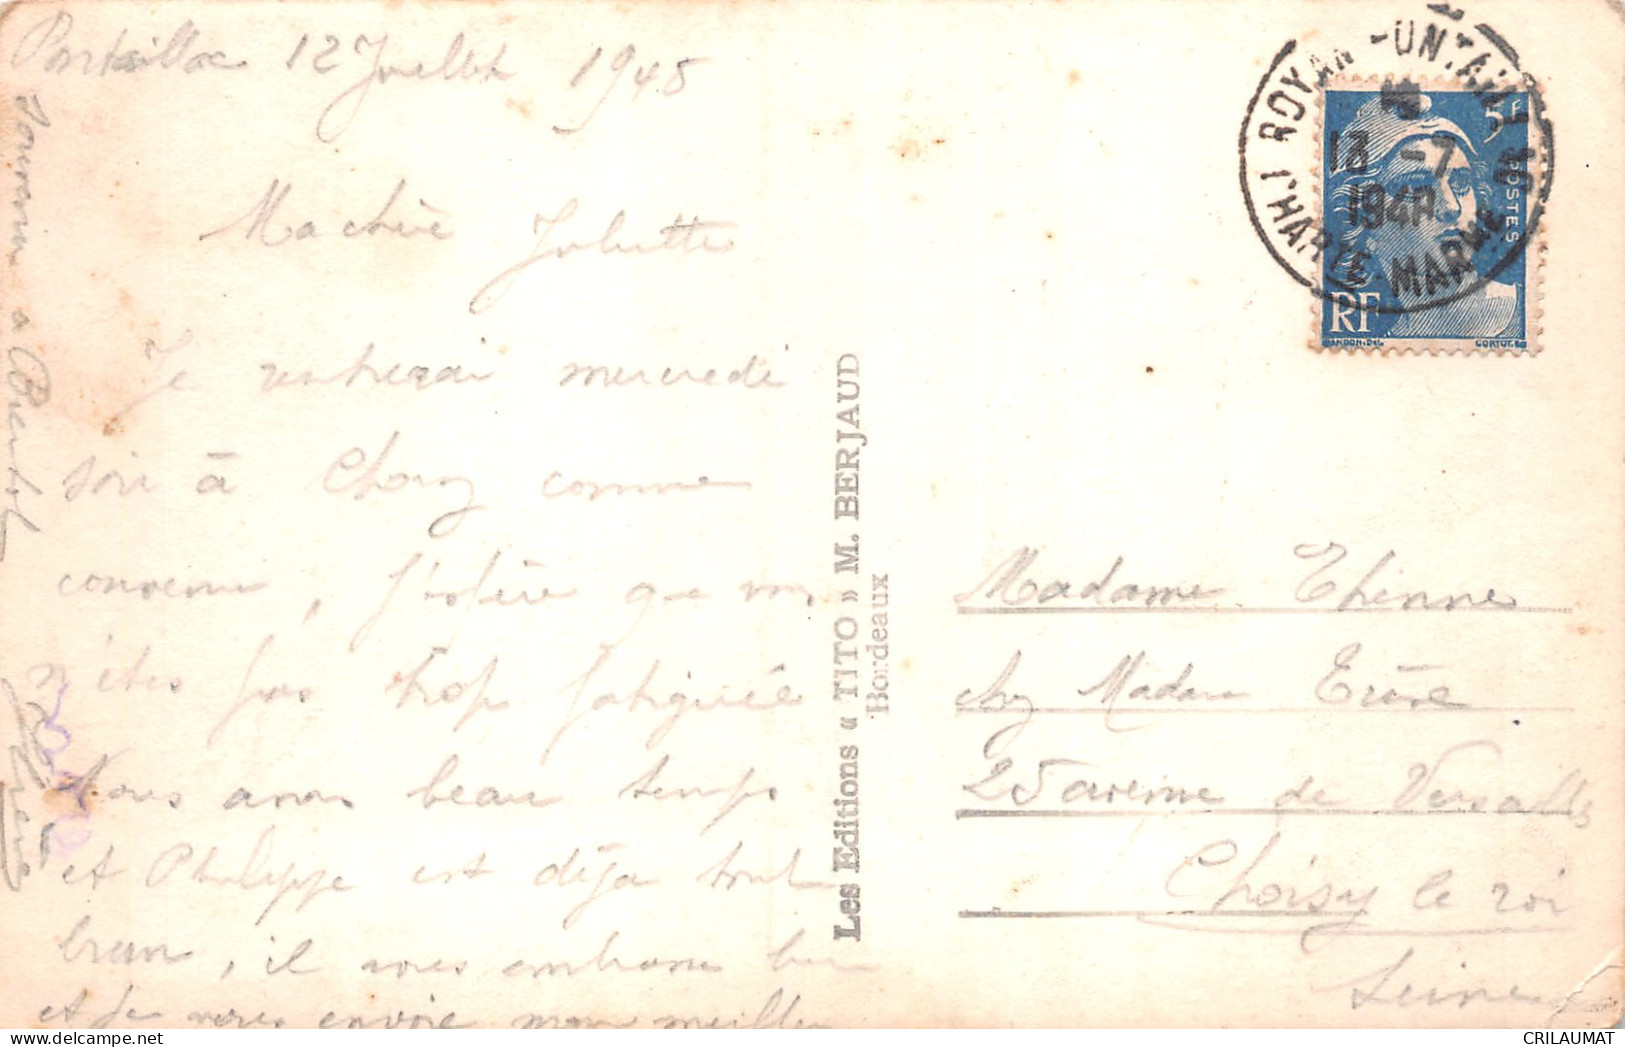 Pontaillac 12 Juillet 1948
Ma chère Juliette
Je rentrerai mercredi
soir à Choisy comme
convenu, j'espère que vous
n'êtes pas trop fatiguée
Nous avons beau temps
et Philippe est déjà tout
brun, il vous embrasse bien
et je vous envoie mon meilleur
souvenir a Bientot
Les Editions « TITO » M. BERJAUD
Bordeaux
ROYAN-PONTAILLAC
13 -7
1948
CHARTE-MARITIME
5F
POSTES
RF
GANDON.DEL
CORTOT.SC
Madame Etienne
chez Madame
25 avenue de Versailles
Choisy le roi
Seine
CRILAUMAT